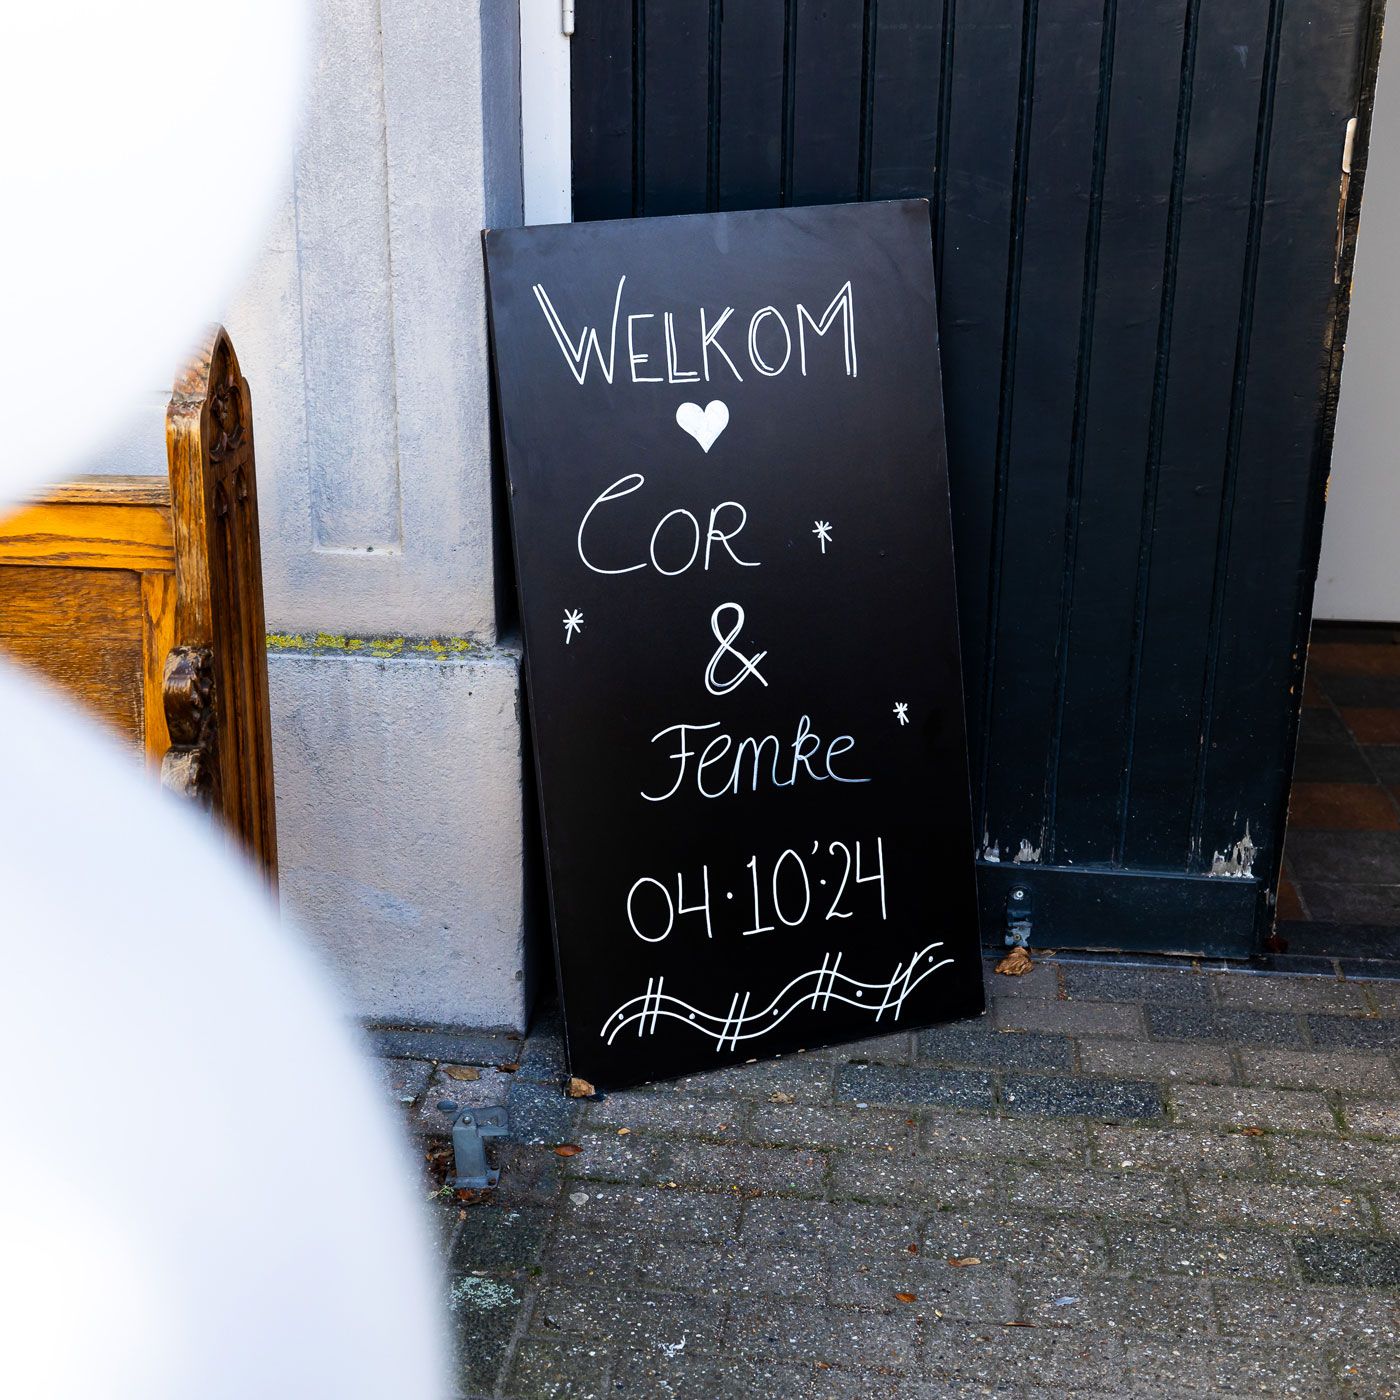 WELKOM
COR
&
Femke
04·10'·24